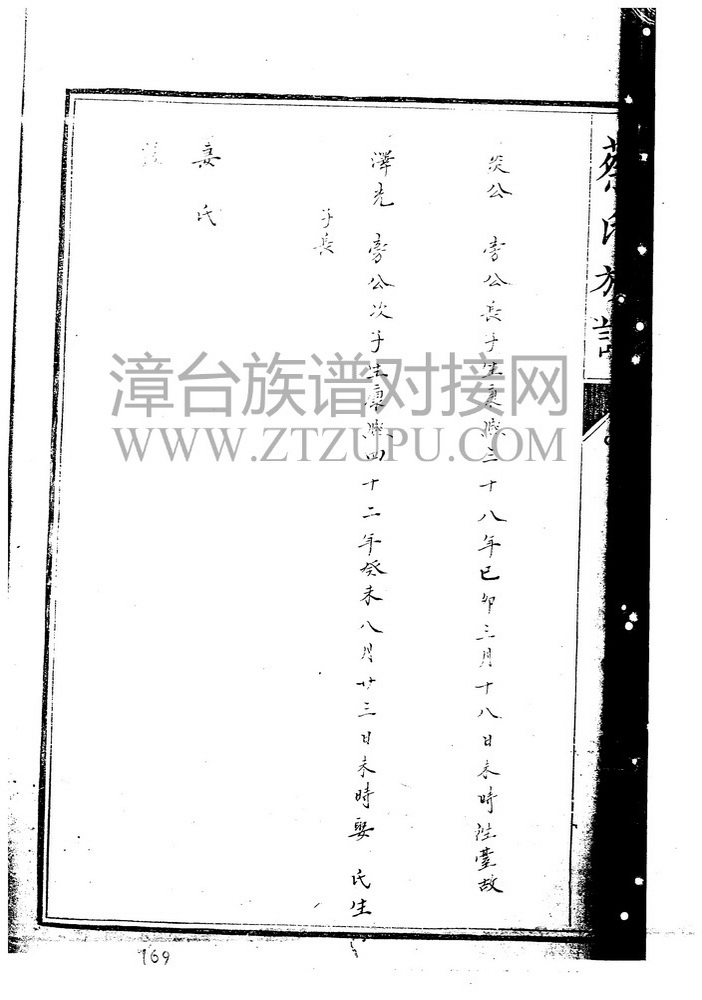 蔡氏族譜
炎公 旁公長子生康熙三十八年己卯三月十八日未時往臺故
澤光 旁公次子生康熙四十二年癸未八月廿三日未時娶 氏生
子長
妻氏
漳台族谱对接网
WWW.ZTZUPU.COM
169